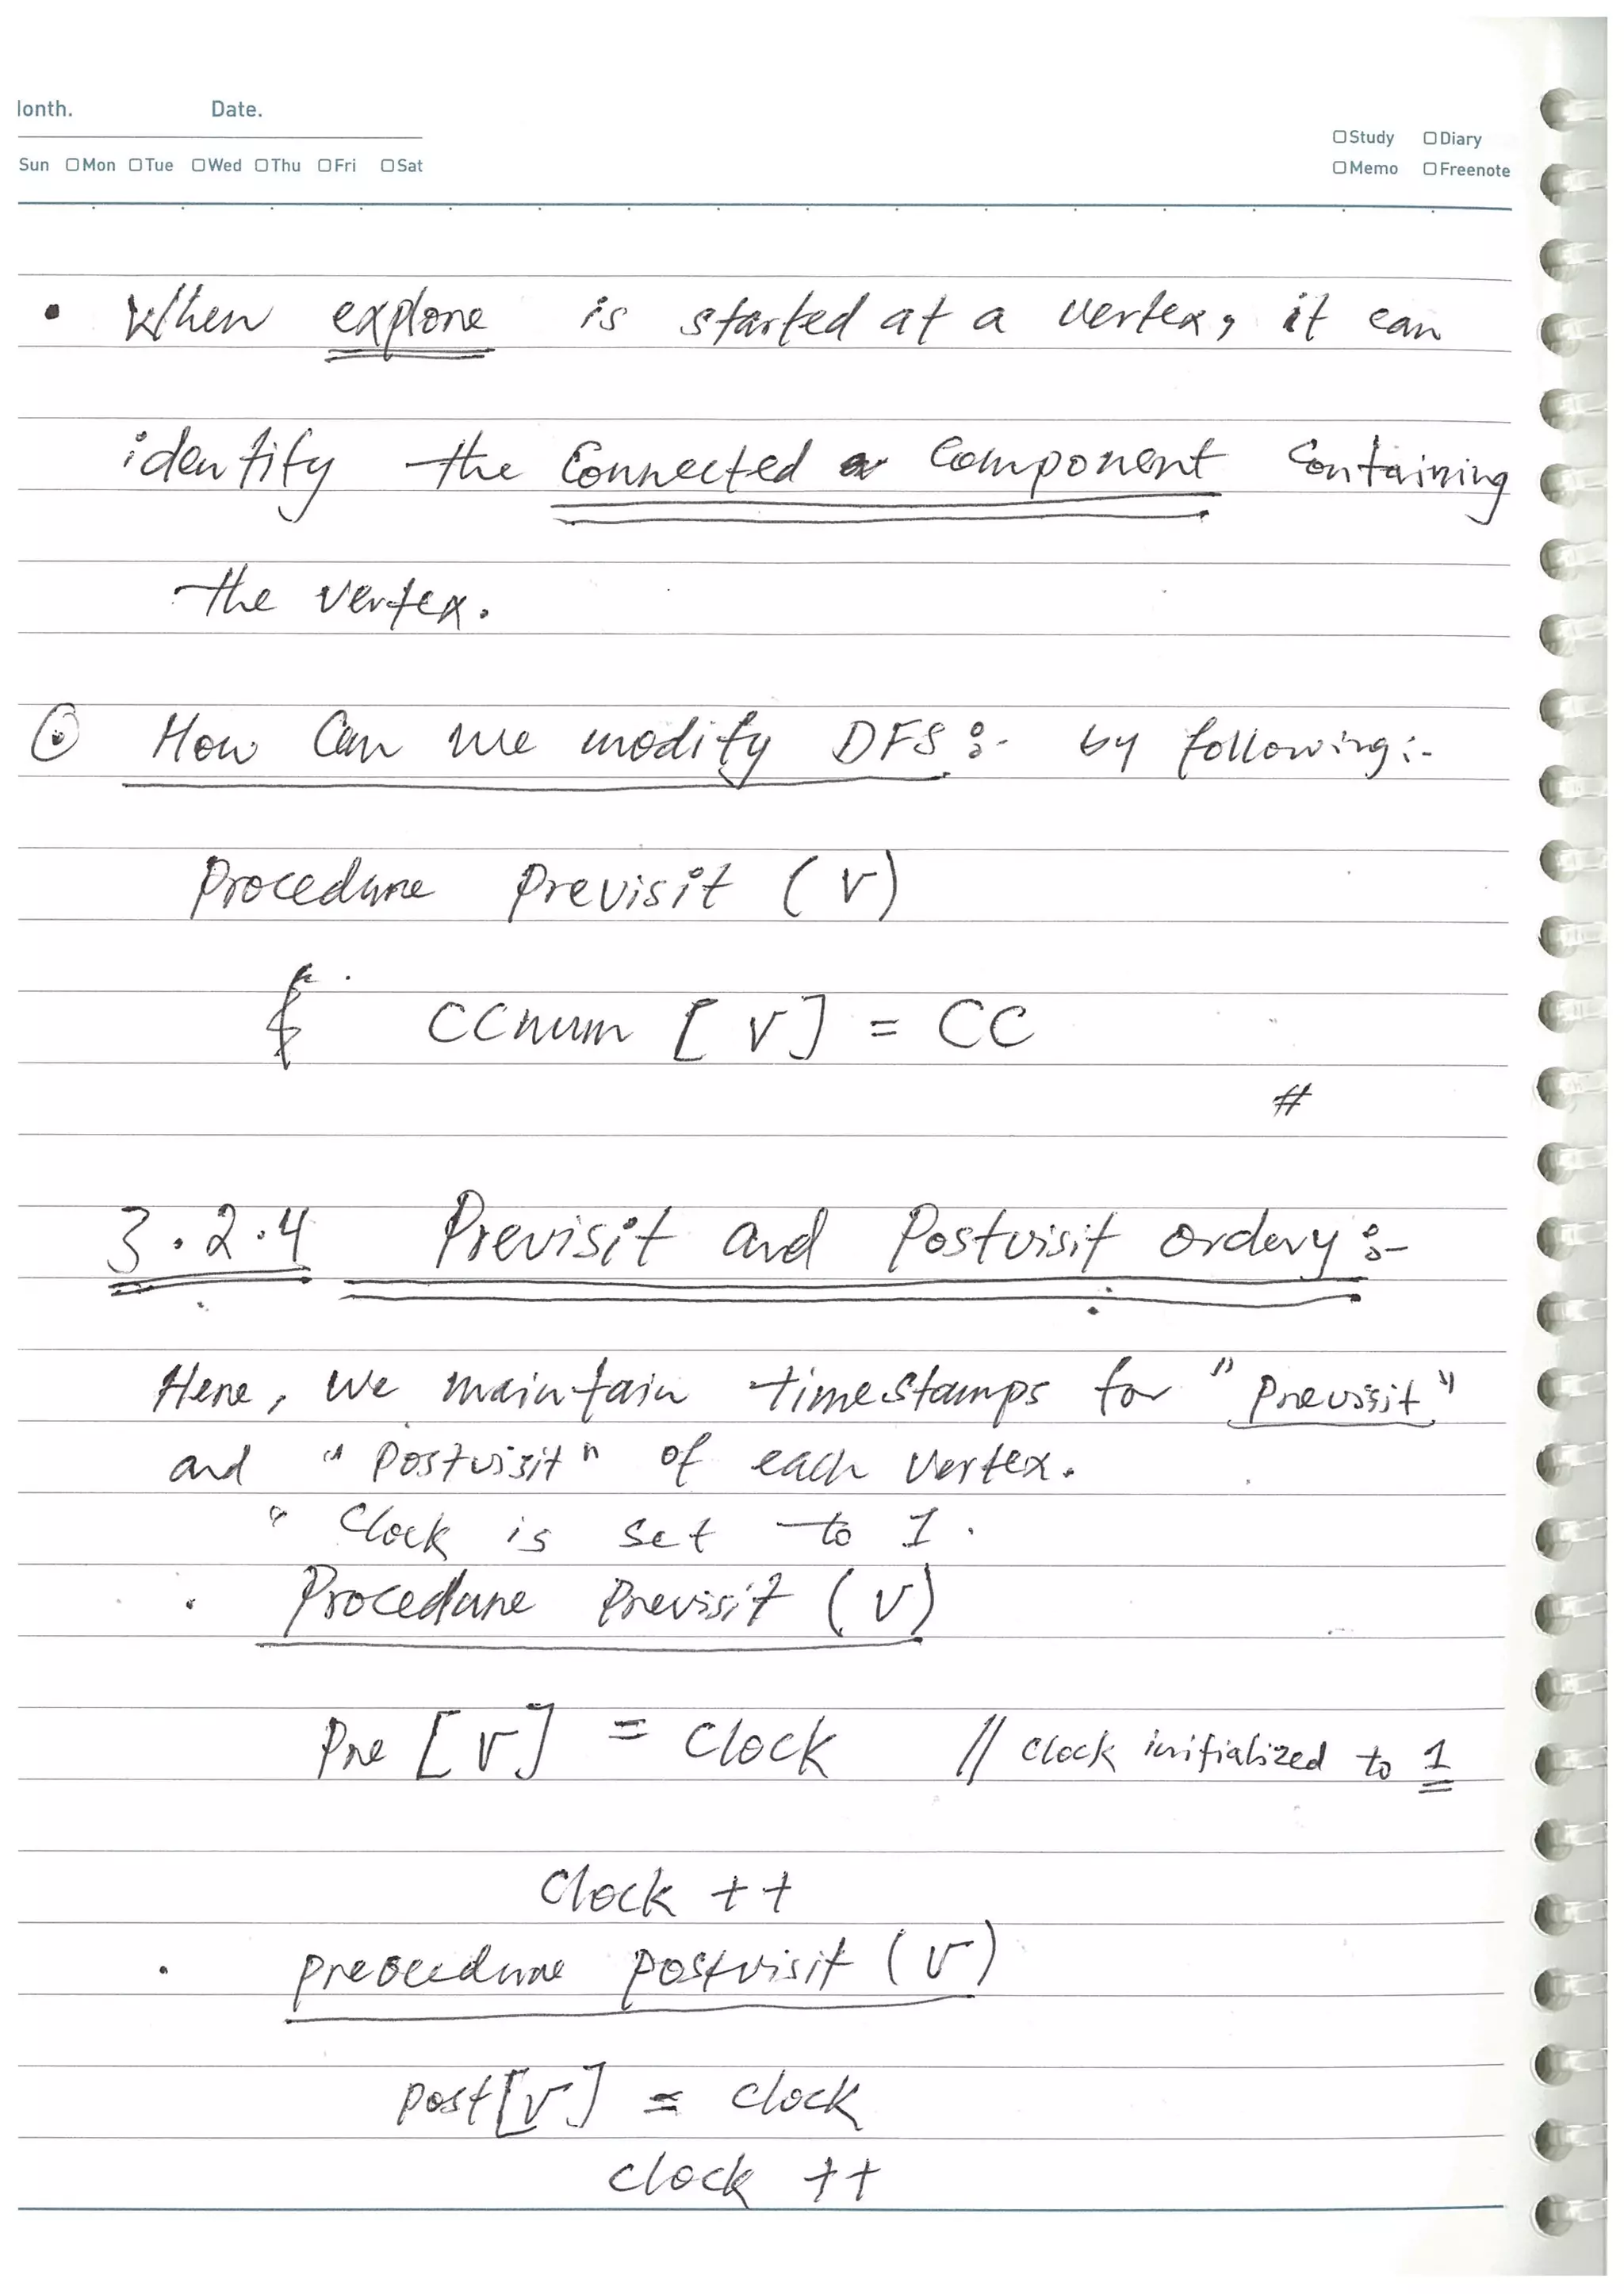 Month. Date.
Sun □Mon □Tue □Wed □Thu □Fri □Sat
□Study □Diary
□Memo □Freenote
• When explore is started at a vertex, it can
identify the Connected Component Containing
the vertex.
How Can we modify DFS:- by following:-
Procedure Previsit (v)
CCnum [v] = CC
#
3.2.4 Previsit and Postvisit ordery:-
Here, we maintain timestamps for "previsit"
and "Postvisit" of each vertex.
" Clock is set to 1.
• Procedure Previsit (v)
Pre [v] = Clock // clock initialized to 1
Clock ++
• preocedure postvisit (v)
post[v] = clock
clock ++